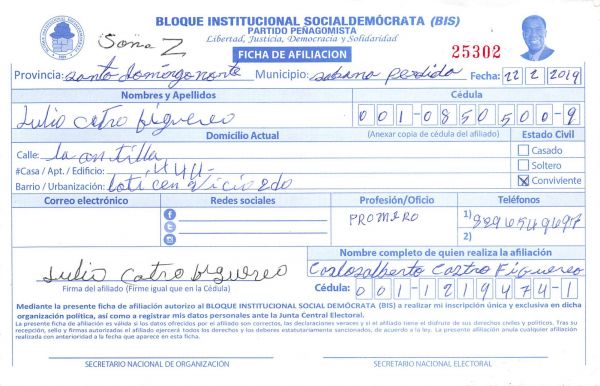 BLOQUE INSTITUCIONAL SOCIALDEMÓCRATA (BIS)
PARTIDO PEÑAGOMISTA
Libertad, Justicia, Democracia y Solidaridad
Sona Z
FICHA DE AFILIACION
25302
Provincia: santo domingo norte Municipio: sabana perdida Fecha: 22 2 2019
Nombres y Apellidos
Cédula
Julio Catro figuereo
001-0850500-9
Domicilio Actual
(Anexar copia de cédula del afiliado)
Estado Civil
Calle: la antilla
Casado
#Casa / Apt. / Edificio: 444-
Soltero
Barrio / Urbanización: loticen
Conviviente
Correo electrónico
Redes sociales
Profesión/Oficio
Teléfonos
PROMERO
1) 8296549697
2)
Nombre completo de quien realiza la afiliación
Julio Catro figuereo
Carlosalberto Castro Figuereo
Firma del afiliado (Firme igual que en la Cédula)
Cédula: 001-1219474-1
Mediante la presente ficha de afiliación autorizo al BLOQUE INSTITUCIONAL SOCIAL DEMÓCRATA (BIS) a realizar mi inscripción única y exclusiva en dicha
organización política, así como a registrar mis datos personales ante la Junta Central Electoral.
La presente ficha de afiliación es válida si los datos ofrecidos por el afiliado son correctos, las declaraciones veraces y si el afiliado tiene el disfrute de sus derechos civiles y políticos. Tras su
recepción, sello y firmas autorizadas el afiliado ejercerá todos los derechos y los deberes estatutariamente sancionados, de acuerdo a la ley. La presente afiliación anula cualquier afiliación
realizada con anterioridad a la fecha que aparece en esta ficha.
SECRETARIO NACIONAL DE ORGANIZACIÓN
SECRETARIO NACIONAL ELECTORAL